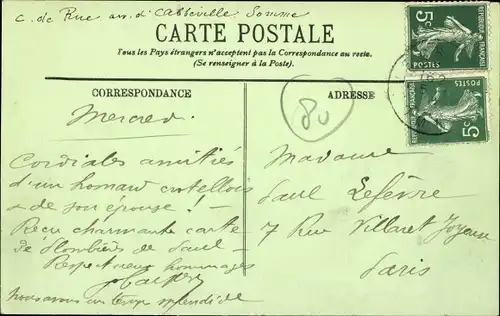 C. de Rue arr. d'Abbeville Somme
CARTE POSTALE
Tous les Pays étrangers n'acceptent pas la Correspondance au recto.
(Se renseigner à la Poste).
CORRESPONDANCE
Mercredi.
Cordiales amitiés
d'un homard crotellois
& de son épouse ! -
Reçu charmante carte
de Plombières de Paul -
Respectueux hommages
nous avons un temps splendide
ADRESSE
80
Madame
Paul Lefèvre
7 Rue Villaret Joyeuse
Paris
5c
REPUBLIQUE FRANÇAISE
POSTES
5c
REPUBLIQUE FRANÇAISE
POSTES